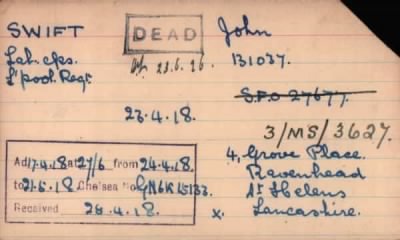 SWIFT
DEAD
John
Lab. cps.
L'pool Regt.
23.6.26.
131037.
23.4.18.
S.F.O 27677.
3/MS/3627.
Ad 17.4.18 at 27/6 from 24.4.18.
to 21.6.18. Chelsea No
Received 28.4.18.
x.
4, Grove Place.
Ravenhead
St Helens
Lancashire.